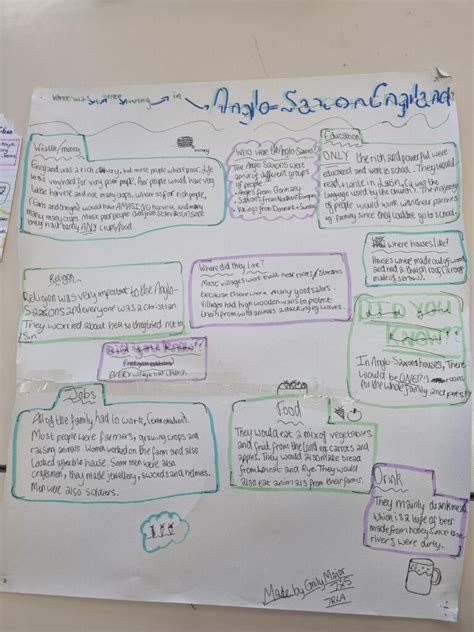 What was life like living in Anglo-Saxon England?
Wealth/money
England was a rich country, but most people where poor. Life
was very hard for very poor people. Poor people would have very
little harvest and not many crops, where as for rich people,
would have AMAZING harvest, and many
many many crops. Most poor people died from starvation since
they made barely ANY crops/food
money
Who were the Anglo-Saxons?
The Anglo Saxons were
a mix of different groups
of people
Angles from Germany
Saxons from Northern Europe
from Denmark + Sweden
Education
ONLY the rich and powerful were
educated and went to school. They would
read and write in Latin, (Latin was the
language used by the church). The majority
of people would work with their parents
eg. farming since they wouldn't go to school.
Where houses like?
Houses where made out of wood
and had a thatch roof (a roof
made of straw).
Religion
Religion was very important to the Anglo-
Saxons and everyone was a Christian
They worried about hell so they tried not to
Sin
Where did they live?
Most villages were built near rivers/streams
because there were many good sailers.
Villages had high wooden walls to protect
them from wild animals attacking villages.
DID YOU KNOW??
EVERY village had church
DID YOU
KNOW??
In Anglo-Saxon houses, There
would be ONE?! room
for the whole family and pets!
Jobs
All of the family had to work, (even children).
Most people were farmers, growing crops and
raising animals. Women worked on the farm and also
looked after the house. Some men were also
craftmen, they made jewellery, swords and helmets.
Men were also soldiers.
Food
They would eat a mix of vegetables
and fruit from the land eg carrots and
apples. They would also make bread
from wheat and Rye. They would
also eat animals from their farms.
Drink
They mainly drank mead
which is a type of beer
made from honey since the
rivers were dirty.
Made by Emily Major
7X5
7RLA